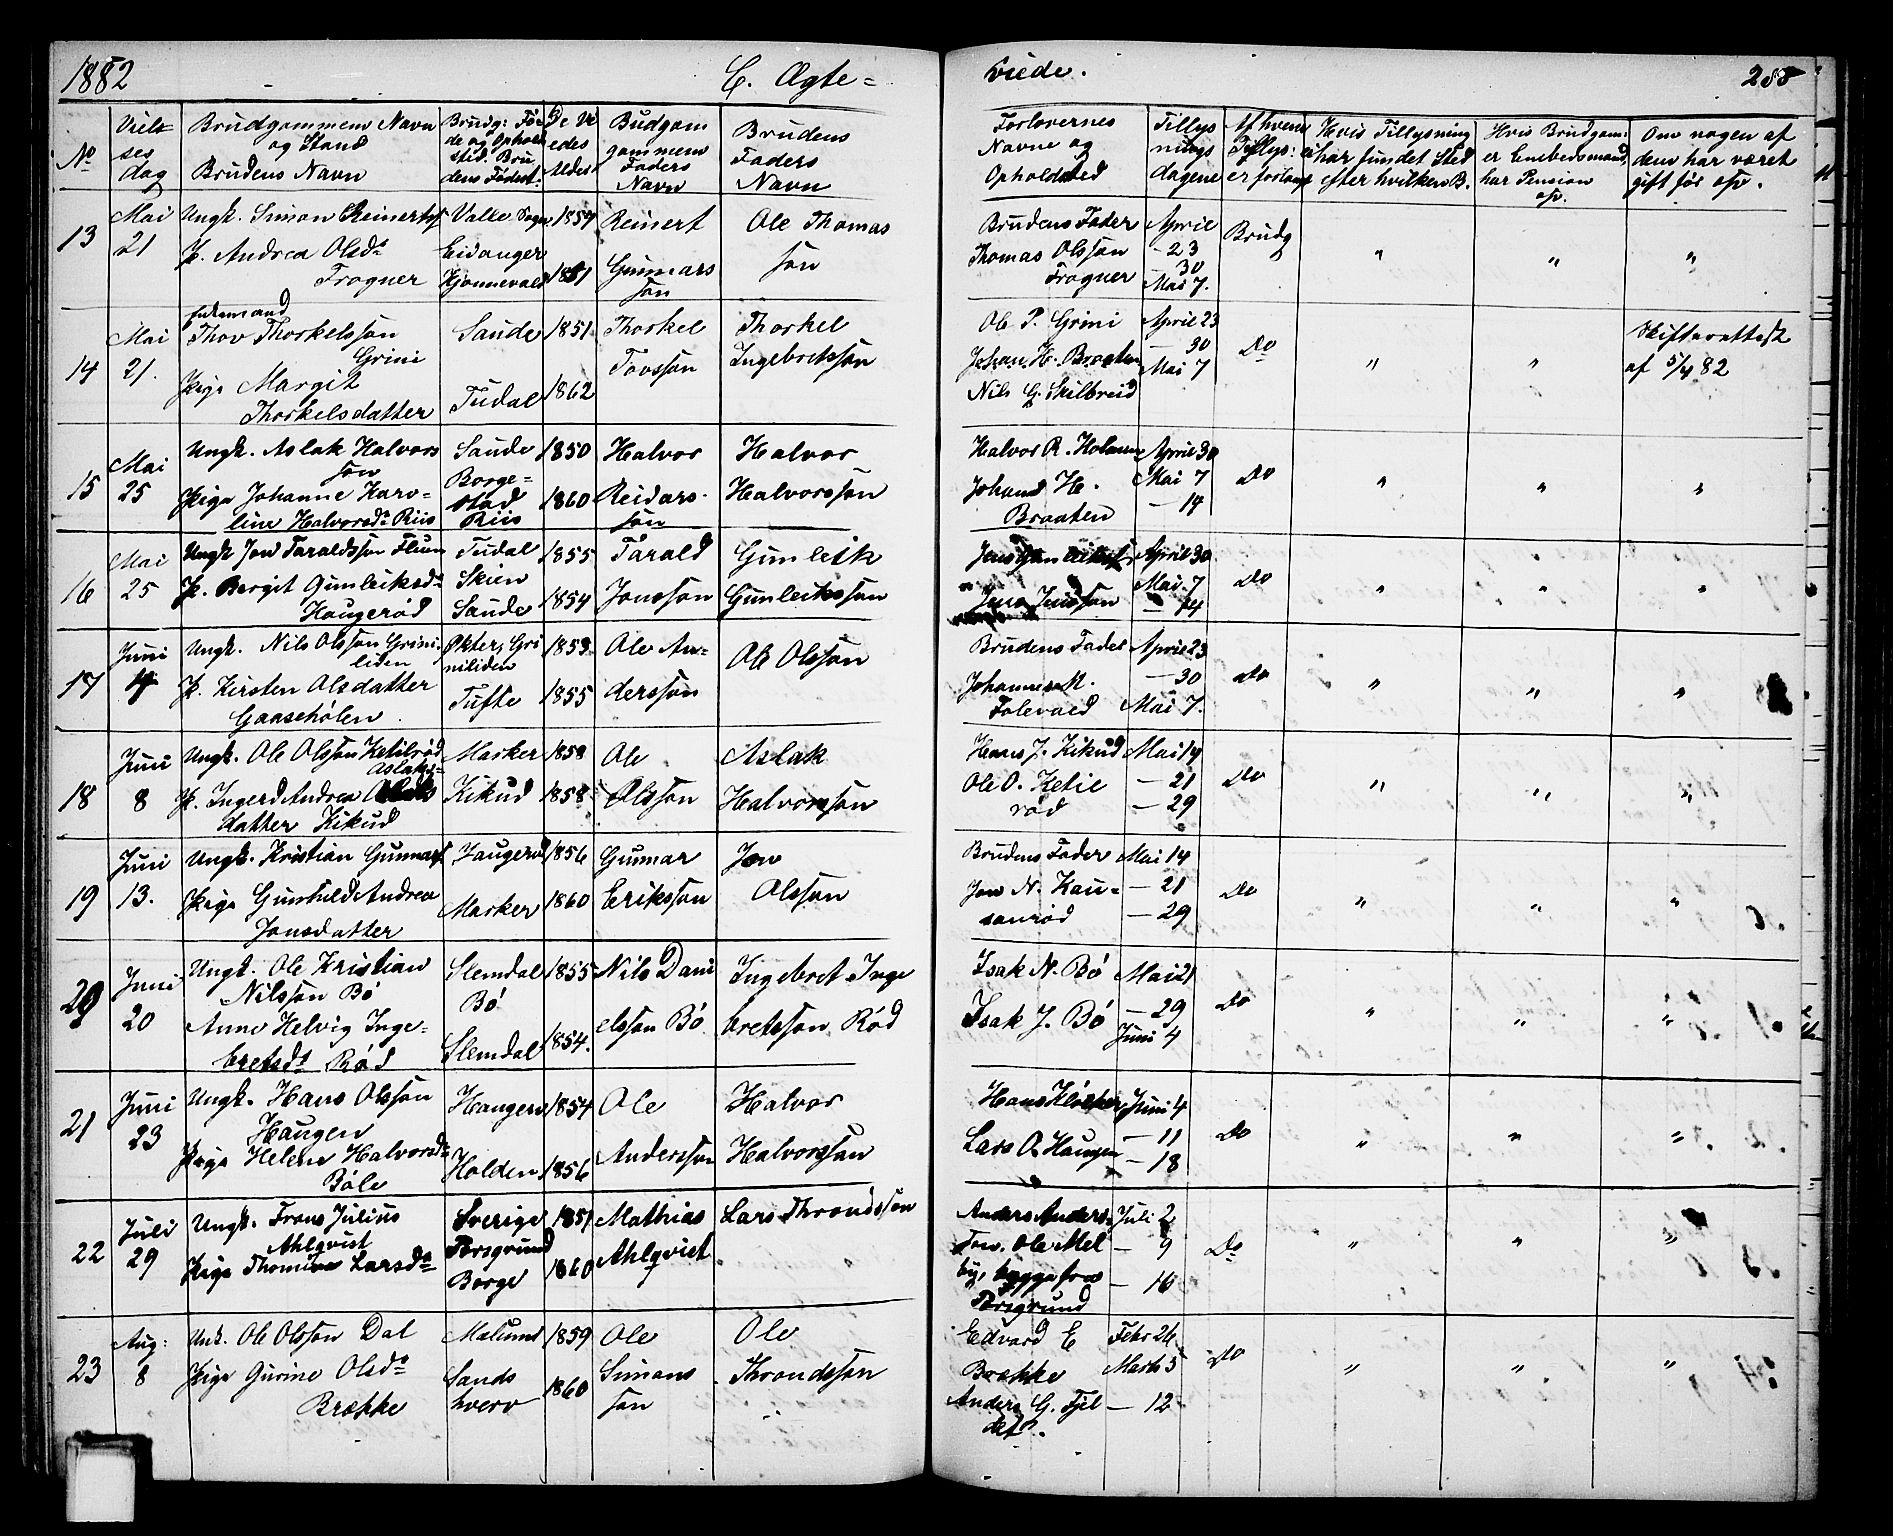 1882
C. Ægte-
viede.
288
No
Vielsesdag
Brudgommens Navn og Stand
Brudens Navn
Brudg: Fø
de og Ophold
stid. Bru
dens Fødest:
De Vi
edes
Alder
Brudens
Faders
Navn
Forlovernes
Navne og
Opholdsted
Tillys
nings
dagene
Af hvem
Tillys:
er forlangt
Hvis Tillysning
ei har fundet Sted
efter hvilken B.
Hvis Brudgom:
er Embedsmand,
har Pension
op.
Om nogen af
dem har været
gift før op.
13
Mai
21
Ungk. Simon Reinertss
P. Andrea Olsd:
Frogner
Valle Sogn
Eidanger
Kjønnevald
1857
Reinert
Gunnars
søn
Ole Thomas
søn
Brudens Fader
Thomas Olssøn
Frogner
April
- 23
- 30
Mai 7.
Brudg
"
"
"
14
Mai
21.
Enkemand
Thov Thorkelssøn
Grini
Pige Margit
Thorkelsdatter
Saude
Tudal
1851
1862
Thorkel
Tovssøn
Thorkel
Ingebretssøn
Ole P. Grini
Johan H. Braaten
Nils G. Skilbreid
April 23
- 30
Mai 7
Do
"
"
Skifteattest
af 5/4 82
15
Mai
25
Ungk. Aslak Halvors
søn
Pige Johanne Karo-
line Halvorsd: Riis
Saude
Borge-
stad
Riis
1850
1860
Halvor
Reidars-
søn
Halvor
Halvorssøn
Halvor R.
Johand H.
Braaten
April 30
Mai 7
- 14
Do
"
"
"
16
Mai
25
Ungk Jon Taraldssøn Flum
P. Bergit Gunleiksd:
Haugerød
Tudal
Skien
Saude
1855
1854
Tarald
Jonssøn
Gunleik
Gunleikssøn
Jens Gunleikss
Jens Jenssøn
April 30
Mai 7
- 14
Do
"
"
"
17
Juni
4
Ungk. Nils Olssøn Grini-
liden
P. Kirsten Olsdatter
Gaaseholen
Økter, Gri
niliden
Tufte
1853
1855
Ole An-
derssøn
Ole Olssøn
Brudens Fader
Johannes M.
Folevald
April 23
- 30
Mai 7.
Do
"
"
"
18
Juni
8
Ungk. Ole Olssøn Ketilrød
Aslaks-
P. Ingerd Andrea
datter Kikud
Marker
Kikud
1858
1858
Ole
Olssøn
Aslak
Halvorssøn
Hans J. Kikud
Ole O. Ketil
rød
Mai 14
- 21
- 29
Do
"
"
"
19
Juni
13.
Ungk. Kristian Gunnars
Pige Gunhild Andrea
Jonsdatter
Marker
1856
1860
Gunnar
Erikssøn
Jon
Olssøn
Brudens Fader
Jon N. Kau-
sanrød
Mai 14
- 21
- 29
Do
"
"
"
20
Juni
20
Ungk. Ole Kristian
Nilssøn Bø
Anne Helvig Inge-
bretsd: Rød
Slemdal
Bø
Slemdal
1855
1854.
Nils Dani
elssøn Bø
Ingebret Inge
bretssøn Rød
Isak N. Bø
Isak J. Bø
Mai 21
- 29
Juni 4
Do
"
"
"
21
Juni
23
Ungk. Hans Olssøn
Haugen
Pige Helene Halvorsd:
Bøle
Haugen
Holden
1854
1856
Ole
Anderssøn
Halvor
Halvorssøn
Lars O. Haugen
Juni 4
- 11
- 18
Do
"
"
"
22
Juli
29
Ungk. Frans Julius
Ahlqvist
Pige Thomine Larsd:
Sverige
Porsgrund
Borge
1851
1860
Mathias
Ahlqvist
Lars Throndssøn
Anders Anders-
søn. Ole Mel
by, begge fra
Porsgrund
Juli 2
- 9
- 16
Do
"
"
"
23
Aug:
8
Unk. Ole Olssøn Dal
Pige Gurine Olsd:
Brække
Melum
Sands
hverv
1859
1860
Ole
Simons
søn
Ole
Throndssøn
Edvard E
Brække
Anders G. Fjel
det
Febr 26
Marts 5
- 12
Do
"
"
"